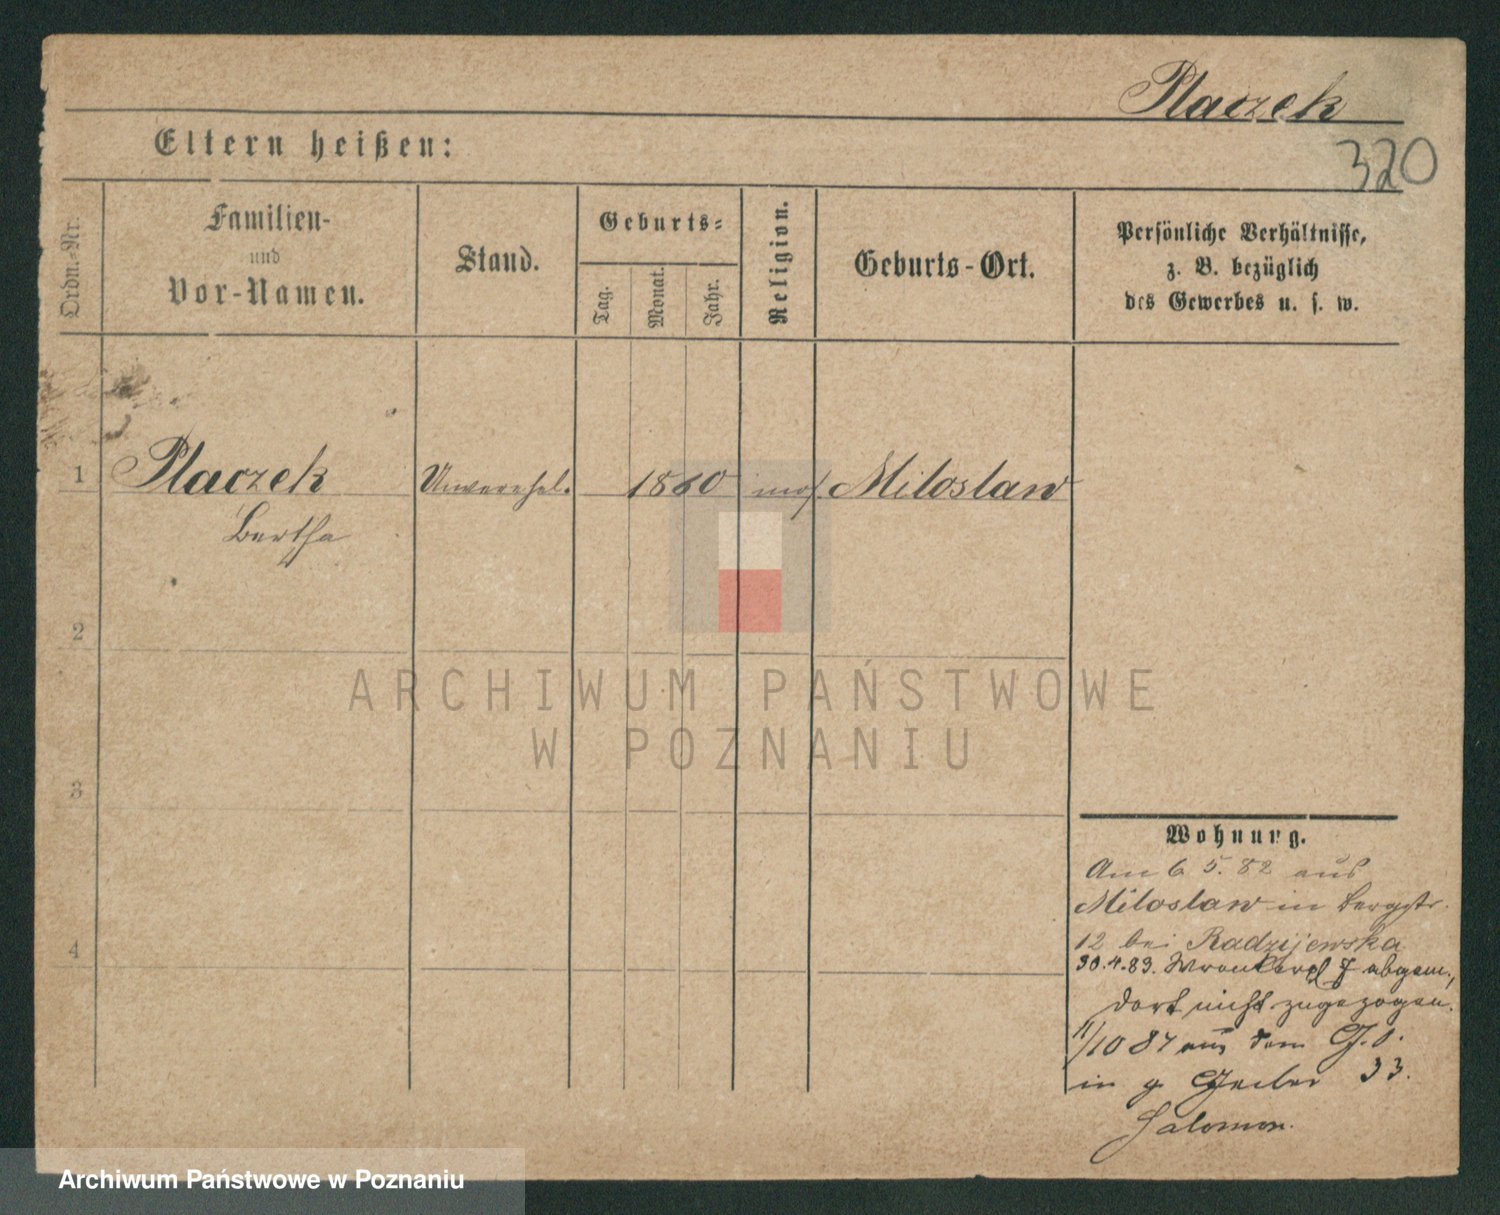 Placzek
320
Eltern heißen:
Ordn.-Nr.
Familien-
und
Vor-Namen.
Stand.
Geburts-
Tag.
Monat.
Jahr.
Religion.
Geburts-Ort.
Persönliche Verhältnisse,
z. B. bezüglich
des Gewerbes u. s. w.
1
Placzek
Unverehel.
1860
mos.
Miloslaw
Bertha
2
ARCHIWUM PAŃSTWOWE
W POZNANIU
3
Wohnung.
Am 6. 5. 82 aus
Miloslaw in Bergstr.
4
12 bei Radzijewska
30.4.83. Wronkerpl 7 abgem.,
dort nicht zugezogen.
11/10 87 aus dem
in g Gerber 33.
Salomon.
Archiwum Państwowe w Poznaniu